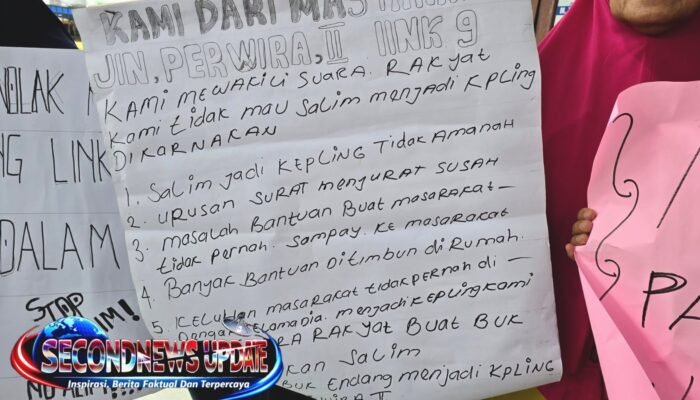 KAMI DARI MAS
JLN, PERWIRA, II LINK 9
KAMI MEWAKILI SUARA. RAKYAT
KAMI tidak mau SALIM menjadi KPLING
DIKARNAKAN
1. SALIM jadi KEPLING TIDAK AMANAH
2. URUSAN SURAT MENJURAT SUSAH
3. MASALAH BANTUAN BUAT MASARAKAT-
tidak PERNAH. SAMPAY. KE MASARAKAT
4. BANYAK BANTUAN DITIMBUN DI RUMAH.
5. KELUHAN masarakat tidak PERNAH di-
menjadi KEPLING KAMI
RAKYAT BUAT BUK
KAN SALIM
BUK ENDANG menjadi KPLING
OLAK
G LINK
DALAM
STOP
SECONDNEWS UPDATE
Inspirasi, Berita Faktual Dan Terpercaya